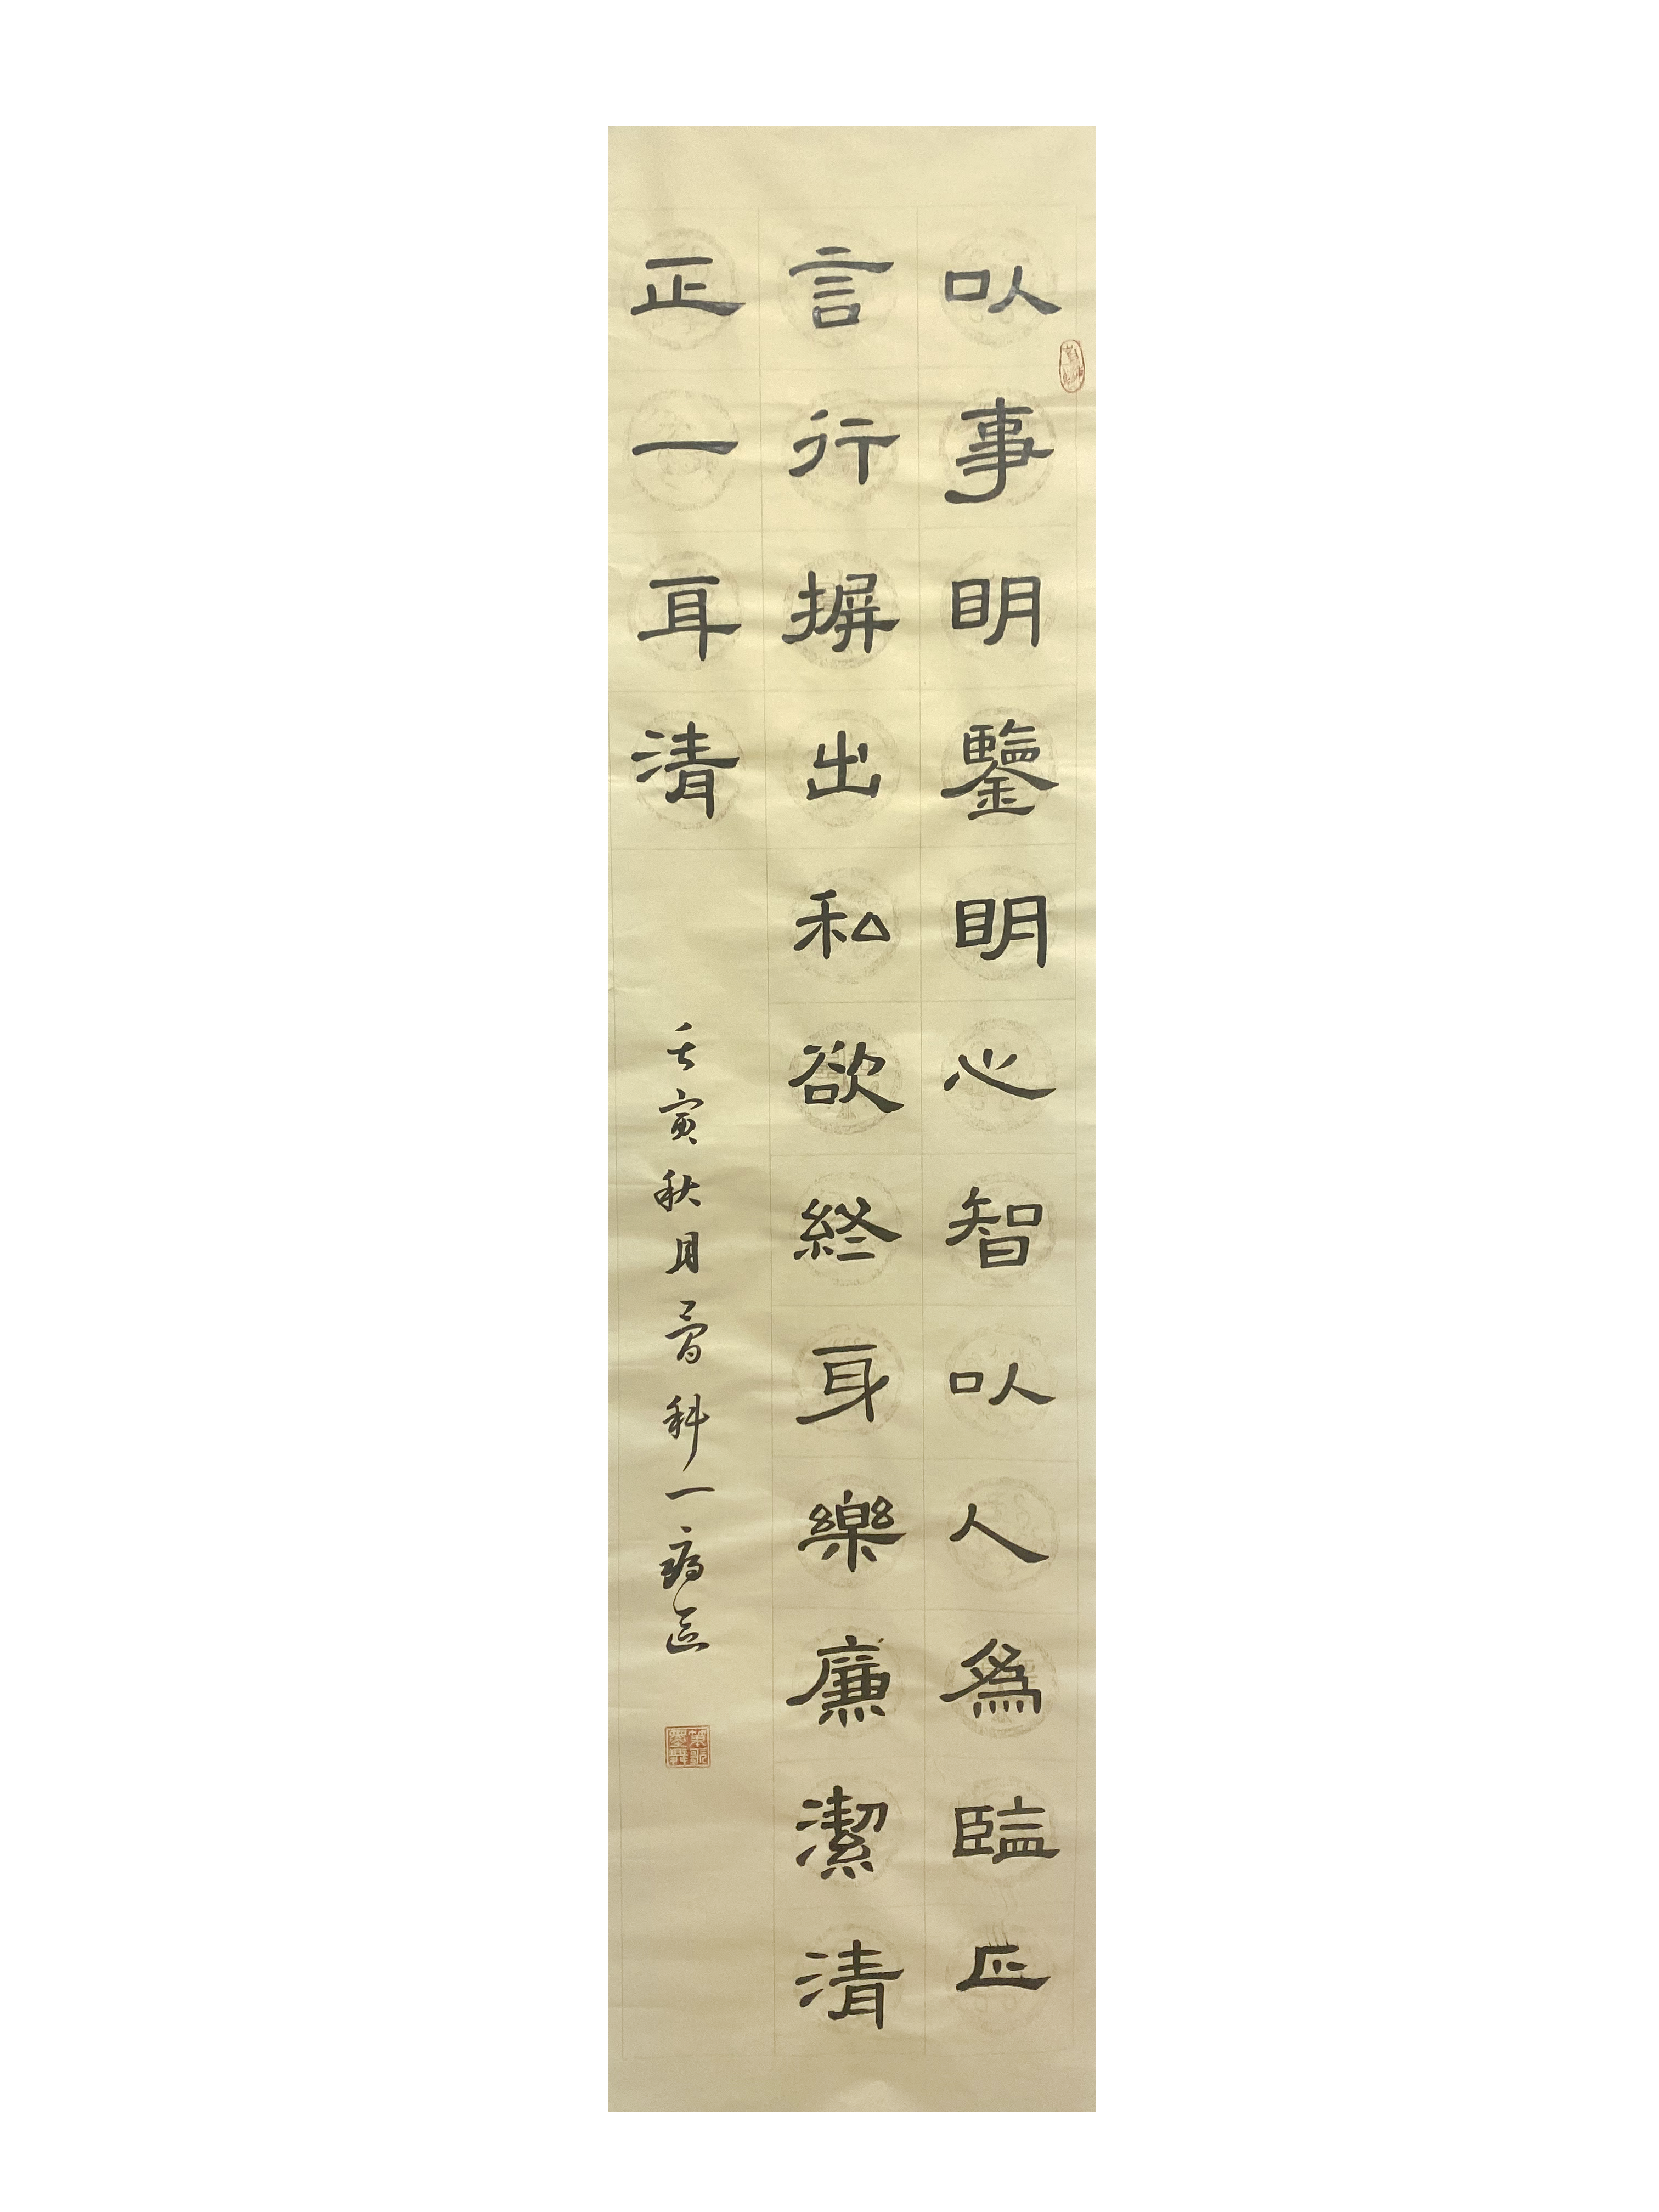 以事明鑒明心智以人為臨正
言行摒出私欲終身樂廉潔清
正一耳清
壬寅秋月 科一